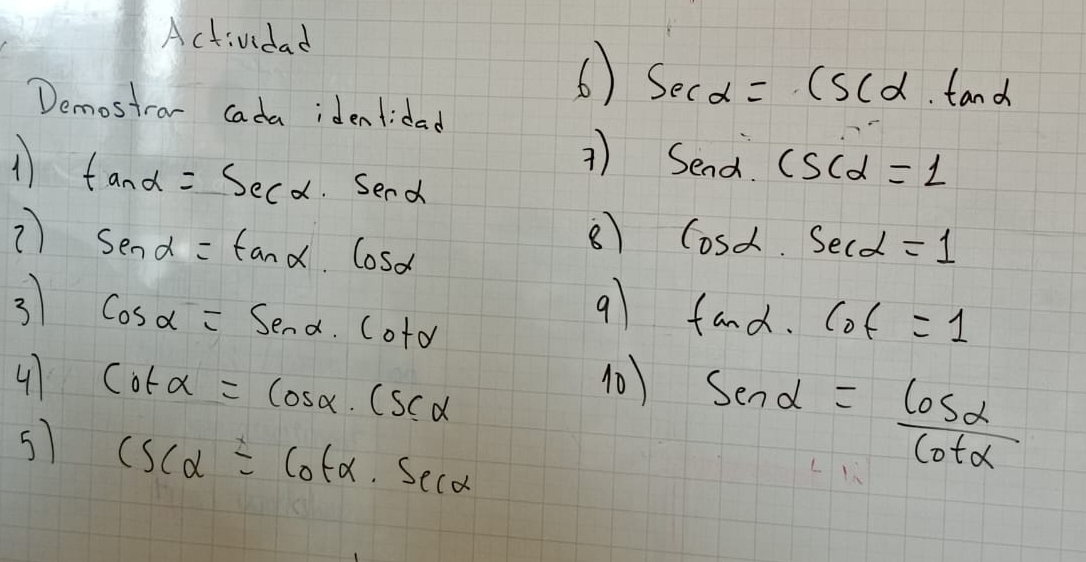 Actividad
Demostrar cada identidad
1) tanα = Secα. Senα
2) Senα = tanα. Cosα
3) Cosα = Senα. Cotα
4) Cotα = Cosα. CSCα
5) CSCα = Cotα. Secα
6) Secα = CSCα. tanα
7) Senα. CSCα = 1
8) Cosα. Secα = 1
9) tanα. Cot = 1
10) Senα = Cosα / Cotα